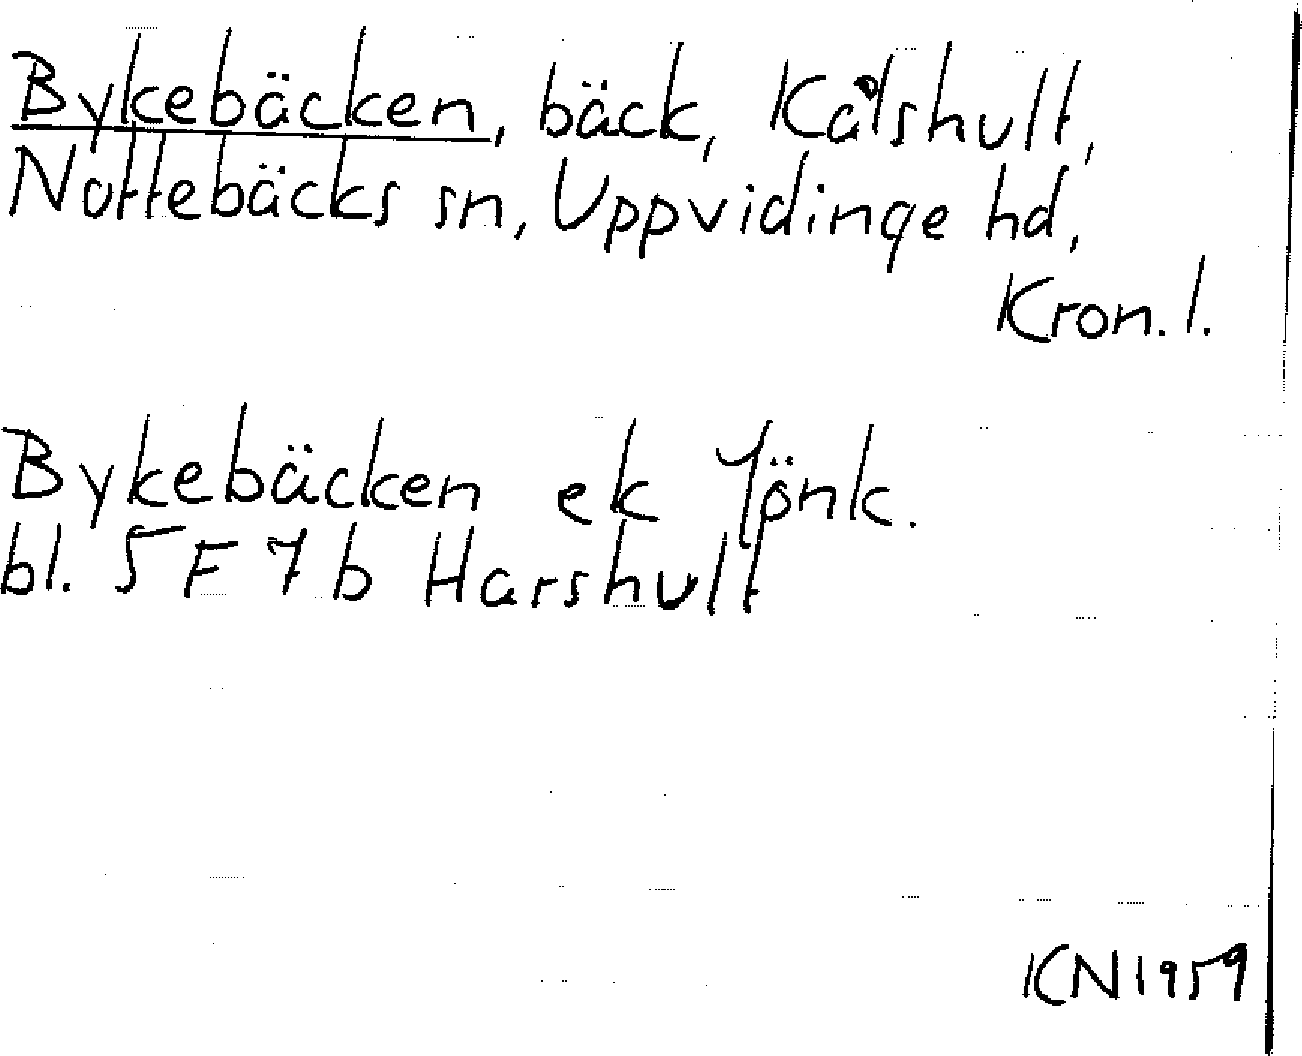 Bykebäcken, bäck, Kålshult,
Nottebäcks sn, Uppvidinge hd,
Kron. l.
Bykebäcken ek Jönk.
bl. 5 F 7 b Harshult
KN 1959